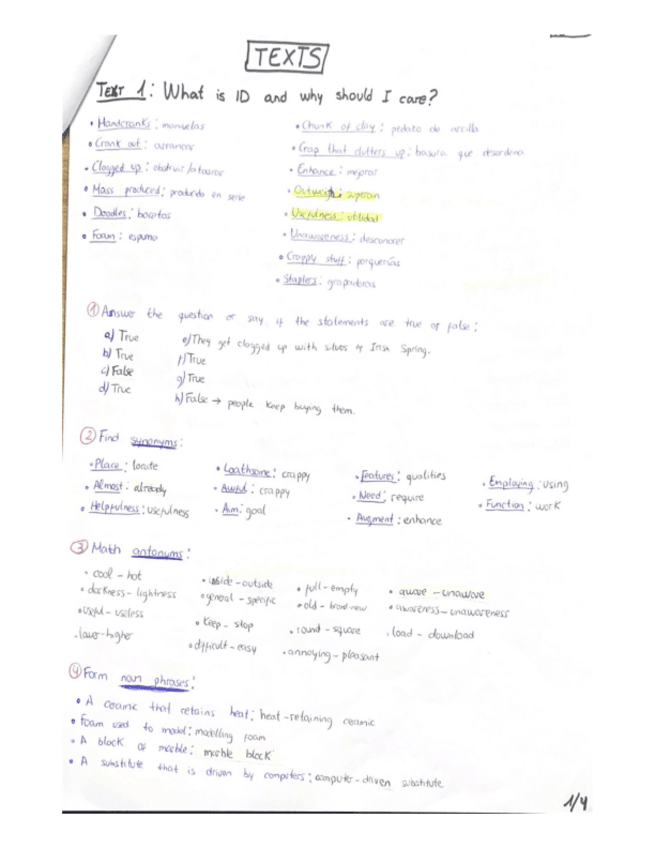 TEXTS
TEXT 1: What is ID and why should I care?
• Handcranks: manuelas
• Crank out: arrancar
• Clogged up: obstruir/atascar
• Mass produced: producido en serie
• Doodles: bocetos
• Foam: espuma
• Chunk of clay: pedazo de arcilla
• Crap that clutters up: basura que desordena
• Enhance: mejorar
• Outweigh: superan
• Usefulness: utilidad
• Unawareness: desconocer
• Crappy stuff: porquerías
• Staplers: grapadoras
① Answer the question or say if the statements are true or false:
a) True
b) True
c) False
d) True
e) They get clogged up with slivers of Irish Spring.
f) True
g) True
h) False → people keep buying them.
② Find synonyms:
• Place: locate
• Almost: already
• Helpfulness: usefulness
• Loathsome: crappy
• Awful: crappy
• Aim: goal
• Features: qualities
• Need: require
• Augment: enhance
• Employing: using
• Function: work
③ Math antonums:
• cool - hot
• darkness - lightness
• useful - useless
• lower - higher
• inside - outside
• general - specific
• keep - stop
• difficult - easy
• full - empty
• old - brand-new
• round - square
• annoying - pleasant
• aware - unaware
• awareness - unawareness
• load - download
④ Form noun phrases:
• A ceramic that retains heat: heat-retaining ceramic
• Foam used to model: modelling foam
• A block of marble: marble block
• A substitute that is driven by computers: computer-driven substitute
1/4